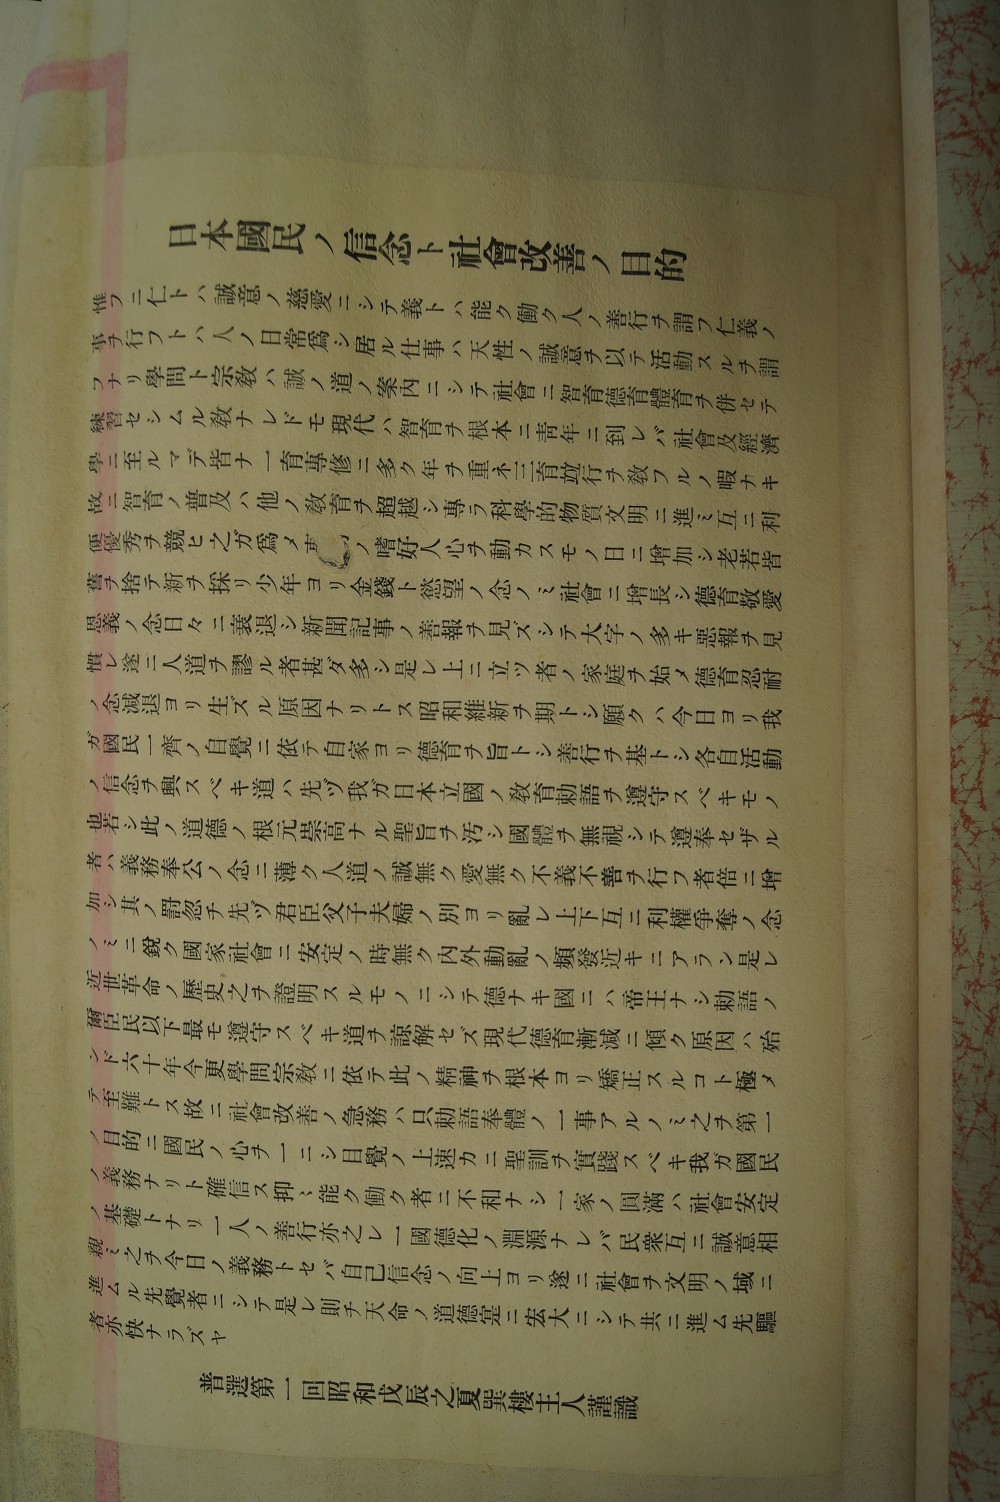 日本國民ノ信念ト社會改善ノ目的
惟フニ仁トハ誠意ノ慈愛ニシテ義トハ能ク働ク人ノ善行ヲ謂フ仁義ノ
事ヲ行フトハ人ノ日常爲シ居ル仕事ハ天性ノ誠意ヲ以テ活動スルヲ謂
フナリ學問ト宗敎ハ誠ノ道ノ案內ニシテ社會ニ智育德育體育ヲ併セテ
練習セシムル敎ナレドモ現代ハ智育ヲ根本ニ靑年ニ到レバ社會及經濟
學ニ至ルマデ皆ナ一育專修ニ多ク年ヲ重ネ三育竝行ヲ敎フルノ暇ナキ
故ニ智育ノ普及ハ他ノ敎育ヲ超越シ專ラ科學的物質文明ニ進ミ互ニ利
便優秀ヲ競ヒ之ガ爲メ ノ嗜好人心ヲ動カスモノ日ニ增加シ老若皆
舊ヲ捨テ新ヲ採リ少年ヨリ金錢ト慾望ノ念ノミ社會ニ增長シ德育敬愛
恩義ノ念日々ニ衰退シ新聞記事ノ善報ヲ見ズシテ大字ノ多キ惡報ヲ見
慣レ遂ニ人道ヲ謬ル者甚ダ多シ是レ上ニ立ツ者ノ家庭ヲ始メ德育忍耐
ノ念減退ヨリ生ズル原因ナリトス昭和維新ヲ期トシ願クハ今日ヨリ我
ガ國民一齊ノ自覺ニ依テ自家ヨリ德育ヲ旨トシ善行ヲ基トシ各自活動
ノ信念ヲ興スベキ道ハ先ヅ我ガ日本立國ノ敎育勅語ヲ遵守スベキモノ
也若シ此ノ道德ノ根元崇高ナル聖旨ヲ汚シ國體ヲ無視シテ遵奉セザル
者ハ義務奉公ノ念ニ薄ク人道ノ誠無ク愛無ク不義不善ヲ行フ者倍ニ增
加シ其ノ罰忽チ先ヅ君臣父子夫婦ノ別ヨリ亂レ上下互ニ利權爭奪ノ念
ノミニ銳ク國家社會ニ安定ノ時無ク內外動亂ノ頻發近キニアラン是レ
近世革命ノ歷史之ヲ證明スルモノニシテ德ナキ國ニハ帝王ナシ勅語ノ
爾臣民以下最モ遵守スベキ道ヲ諒解セズ現代德育漸減ニ傾ク原因ハ殆
ンド六十年今更學問宗敎ニ依テ此ノ精神ヲ根本ヨリ矯正スルコト極メ
テ至難トス故ニ社會改善ノ急務ハ只勅語奉體ノ一事アルノミ之ヲ第一
ノ目的ニ國民ノ心ヲ一ニシ目覺ノ上速カニ聖訓ヲ實踐スベキ我ガ國民
ノ義務ナリト確信ス抑ミ能ク働ク者ニ不和ナシ一家ノ圓滿ハ社會安定
ノ基礎トナリ一人ノ善行亦之レ一國德化ノ淵源ナレバ民衆互ニ誠意相
親ミ之ヲ今日ノ義務トセバ自己信念ノ向上ヨリ遂ニ社會ヲ文明ノ域ニ
進ムル先覺者ニシテ是レ則チ天命ノ道德寔ニ宏大ニシテ共ニ進ム先驅
者亦快ナラズヤ
普選第一回昭和戊辰之夏巽樓主人謹識